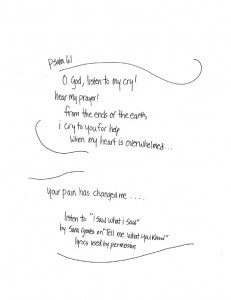 psalm 61
O God, listen to my cry!
hear my prayer!
from the ends of the earth,
i cry to you for help
when my heart is overwhelmed...
your pain has changed me ....
listen to "i saw what i saw"
by Sara Groves on "Tell me what you know"
lyrics used by permission